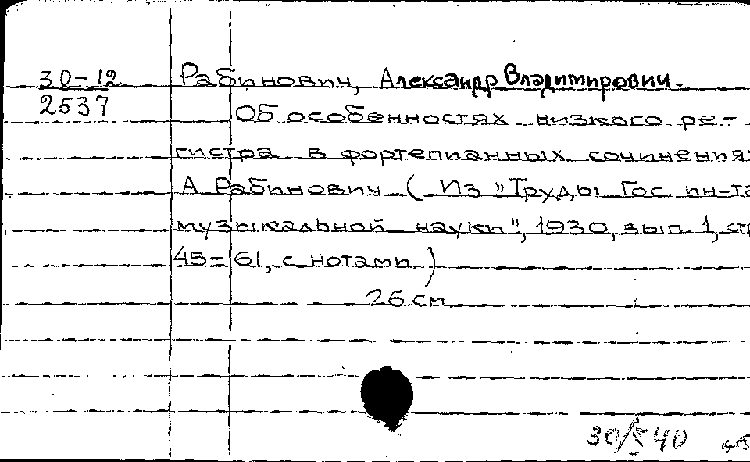 30-12
2537
Рабинович, Александр Владимирович.
Об особенностях низкого ре-
гистра в фортепианных сочинениях
А Рабинович (Из "Труды Гос ин-та
музыкальной науки", 1930, вып. 1, стр
45-61, с нотами)
26 см
30/5 40